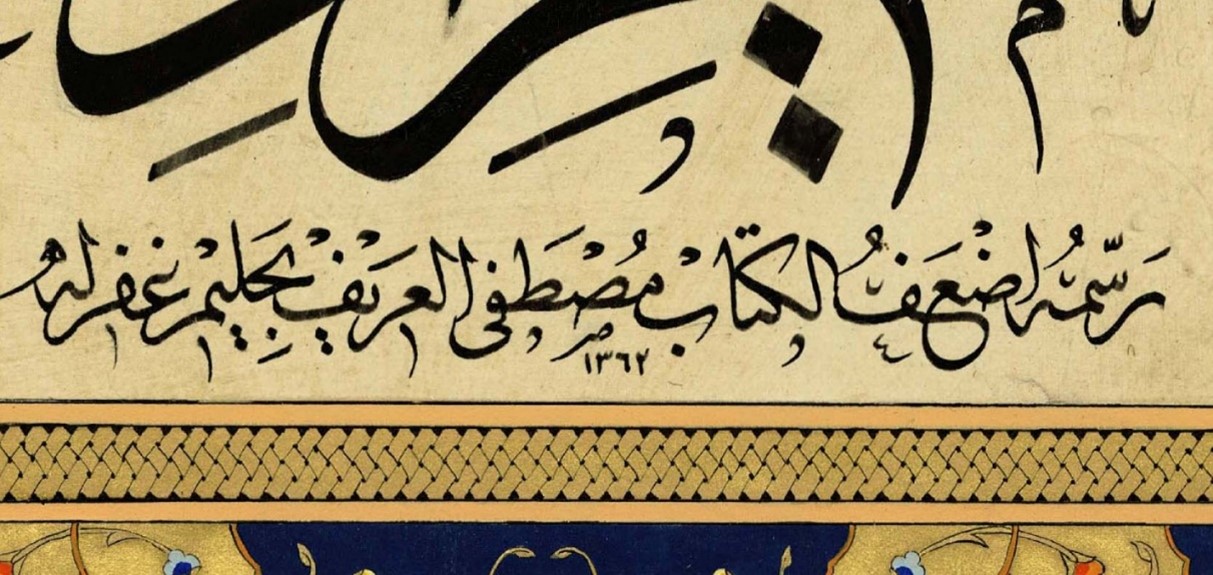 رَسَّمَهُ اَضْعَفُ الكتَّاب مُصْطَفٰى العريف بحليم غفر له
١٣٦٢